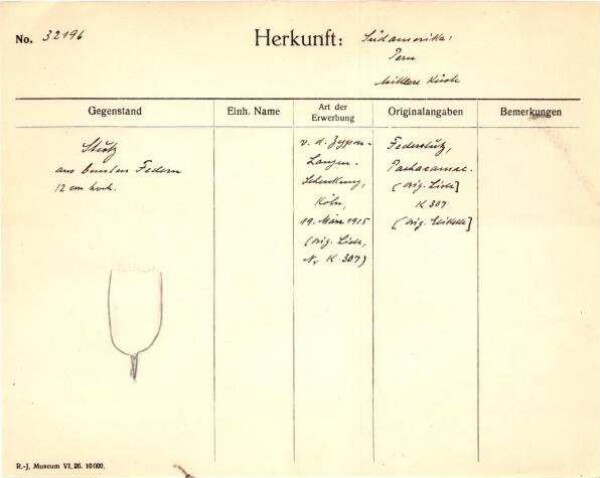 No. 32196
Herkunft: Südamerika:
Peru
Mittlere Küste
Gegenstand
Einh. Name
Art der Erwerbung
Originalangaben
Bemerkungen
Stutz
aus bunten Federn
12 cm hoch.
v. d. Zypen-
Langen-
Schenkung,
Köln,
19. März 1915
(orig. Liste,
Nr K 307)
Federstutz,
Pachacamac.
(orig. Liste]
K 307
(orig. Etikette]
R.-J. Museum VI. 26. 10000.